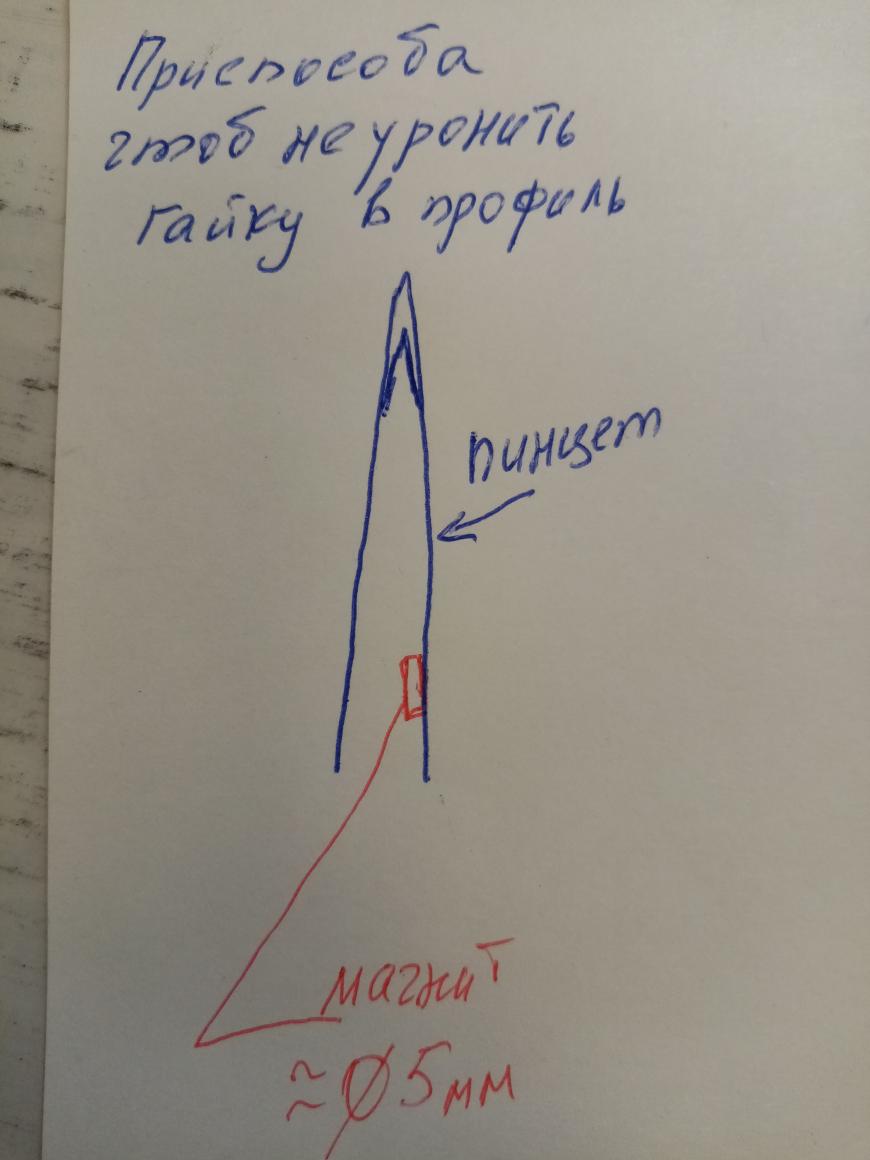 Приспособа
чтоб не уронить
гайку в профиль
пинцет
магнит
≈ Ø5мм